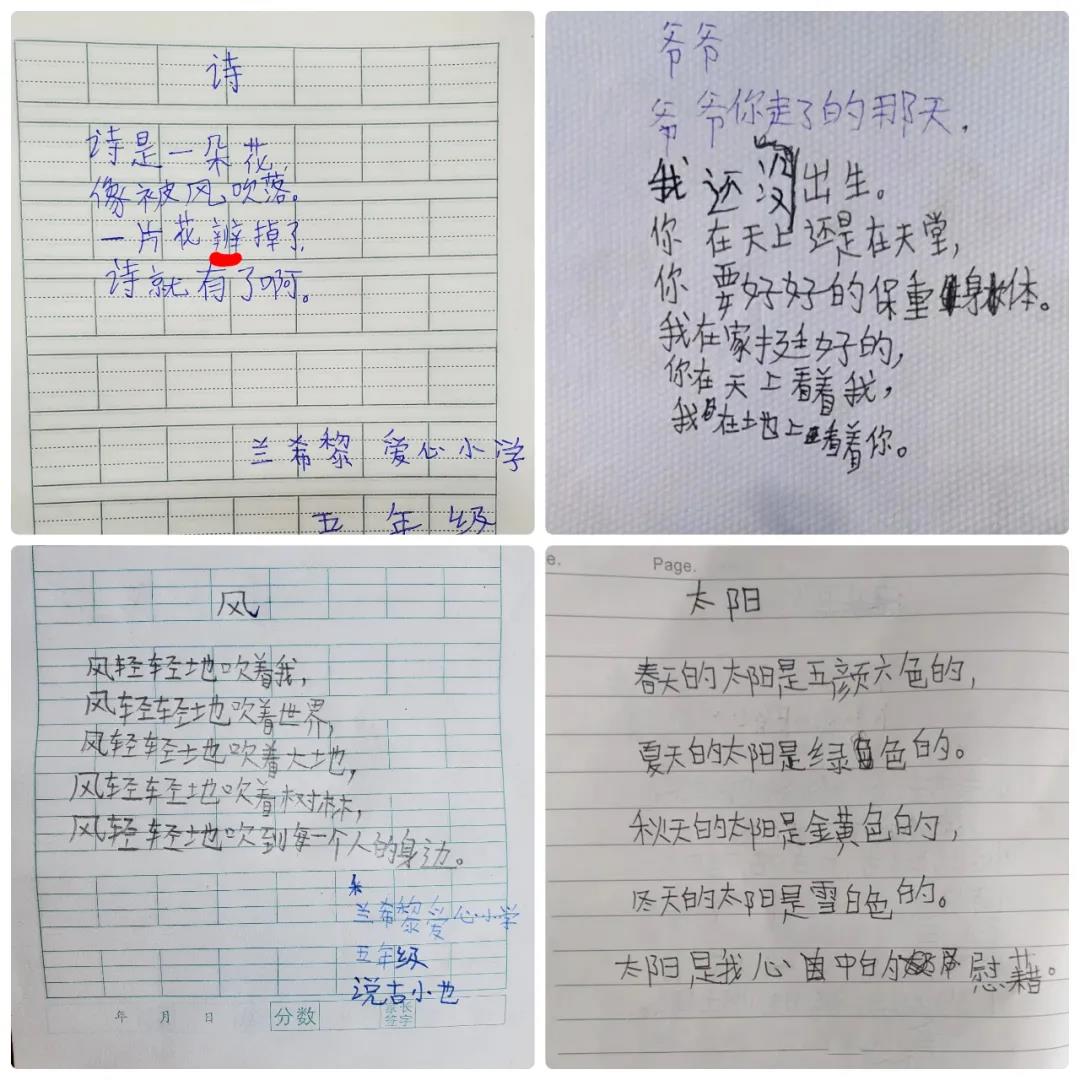 诗
诗是一朵花,
像被风吹落。
一片花辨掉了,
诗就有了啊。
兰希黎 爱心小学
五年级
爷爷
爷爷你走了的那天,
我还没出生。
你在天上还是在天堂,
你要好好的保重身体。
我在家挺好的,
你在天上看着我,
我在地上看着你。
风
风轻轻地吹着我,
风轻轻地吹着世界,
风轻轻地吹着大地,
风轻轻地吹着树林,
风轻轻地吹到每一个人的身边。
兰希黎爱心小学
五年级
说古小也
年 月 日
分数
家长
签字
e.
Page.
太阳
春天的太阳是五颜六色的,
夏天的太阳是绿色的。
秋天的太阳是金黄色的,
冬天的太阳是雪白色的。
太阳是我心中的慰藉。